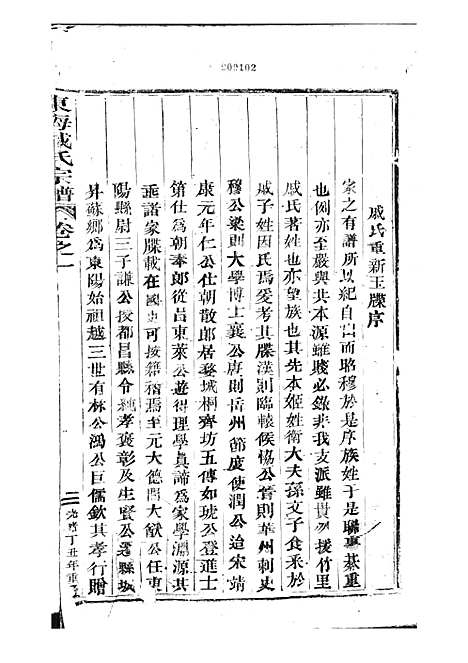 202102
戚氏重新玉牒序
家之有譜所以紀自出而昭穆於是序族姓于是聯事綦重
也例亦至嚴與其本源雖賤必錄非我支派雖貴勿援竹里
戚氏著姓也亦望族也其先本姬姓衛大夫孫文子食采於
戚子姓因氏焉爰考其牒漢則臨轅侯協公晉則華州刺史
穆公梁則大學博士襄公唐則岳州節度使潤公迨宋靖
康元年仁公仕朝散郎居婺城桐齊坊五傳如琥公登進士
第仕為朝奉郎從呂東萊公遊得理學真諦為家學淵源其
垂諸家牒載在國史可按籍稽焉至元大德間大猷公任東
陽縣尉三子謙公授都昌縣令純孝褒彰及生賢公遷縣城
昇蘇鄉為東陽始祖越三世有林公鴻公巨儒欽其孝行贈
東海戚氏宗譜 卷之一
二 光緒丁丑年重